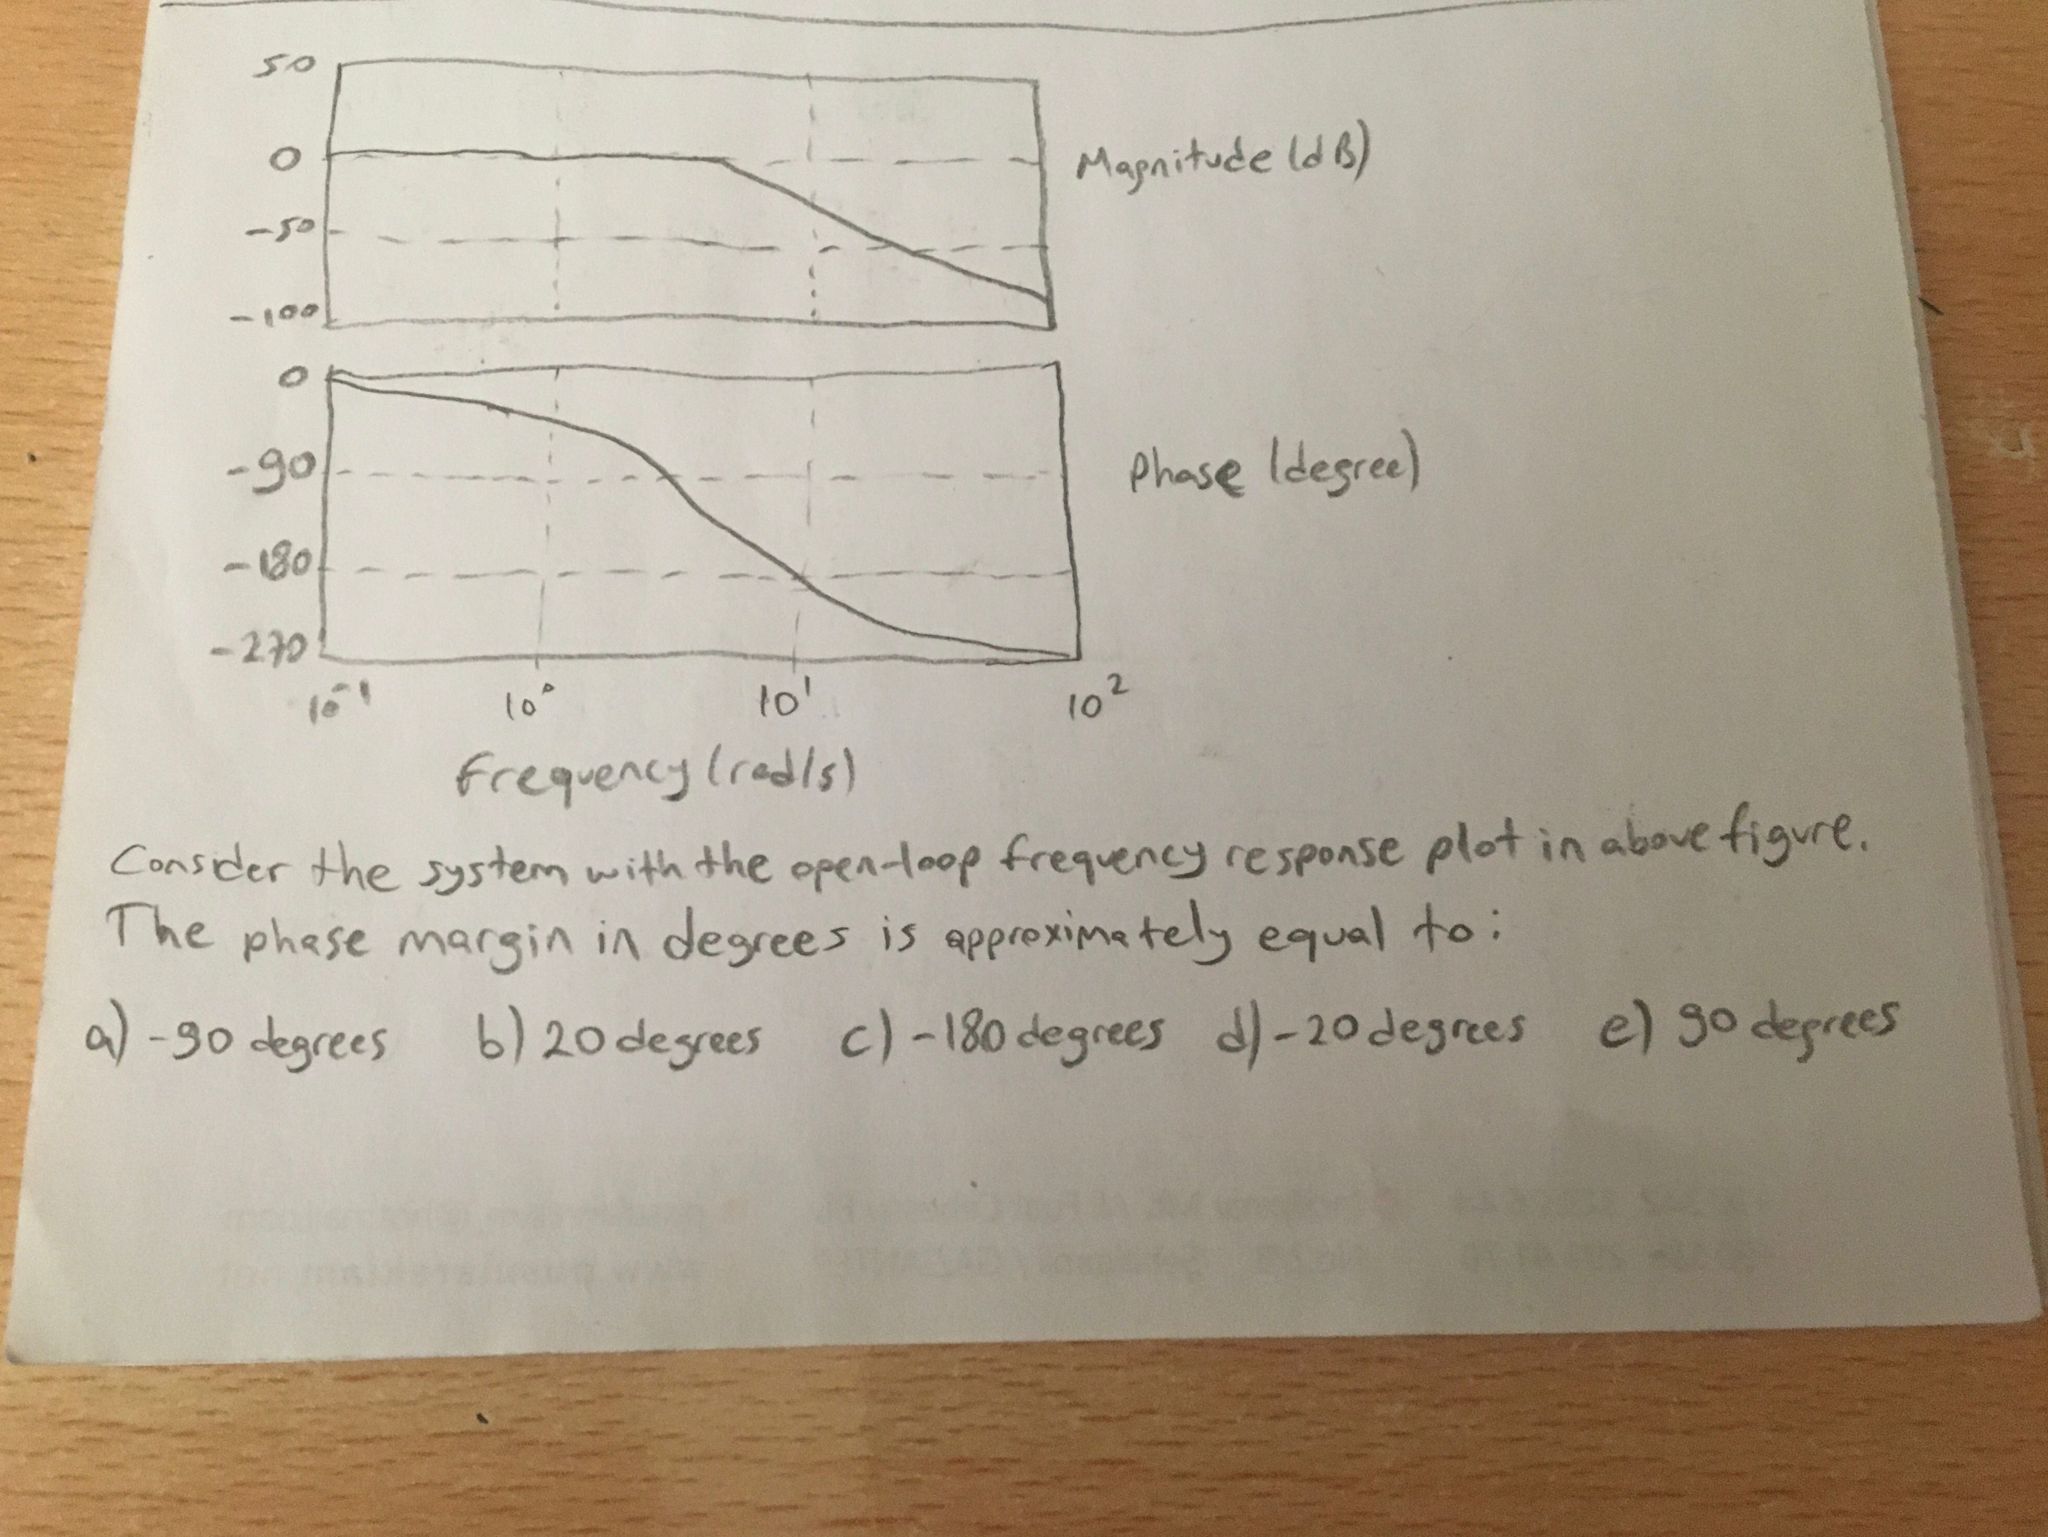 50
0
Magnitude (dB)
-50
-100
0
-90
Phase (degree)
-180
-270
10⁻¹ 10⁰ 10¹ 10²
Frequency (rad/s)
Consider the system with the open-loop frequency response plot in above figure.
The phase margin in degrees is approximately equal to:
a) -90 degrees b) 20 degrees c) -180 degrees d) -20 degrees e) 90 degrees